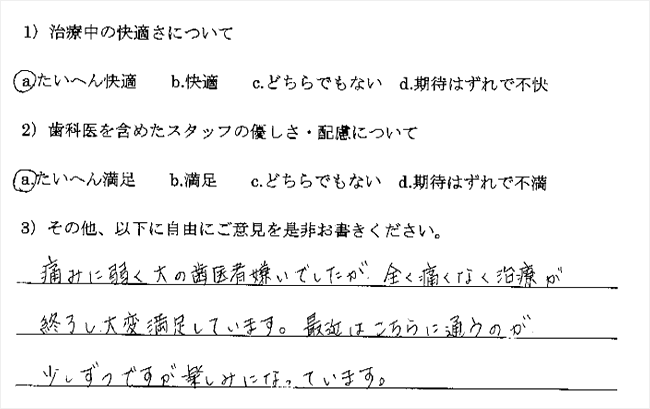 1）治療中の快適さについて
a.たいへん快適　b.快適　c.どちらでもない　d.期待はずれで不快
2）歯科医を含めたスタッフの優しさ・配慮について
a.たいへん満足　b.満足　c.どちらでもない　d.期待はずれで不満
3）その他、以下に自由にご意見を是非お書きください。
痛みに弱く大の歯医者嫌いでしたが、全く痛くなく治療が
終ろし、大変満足しています。最近はこちらに通うのが
少しずつですが楽しみになっています。